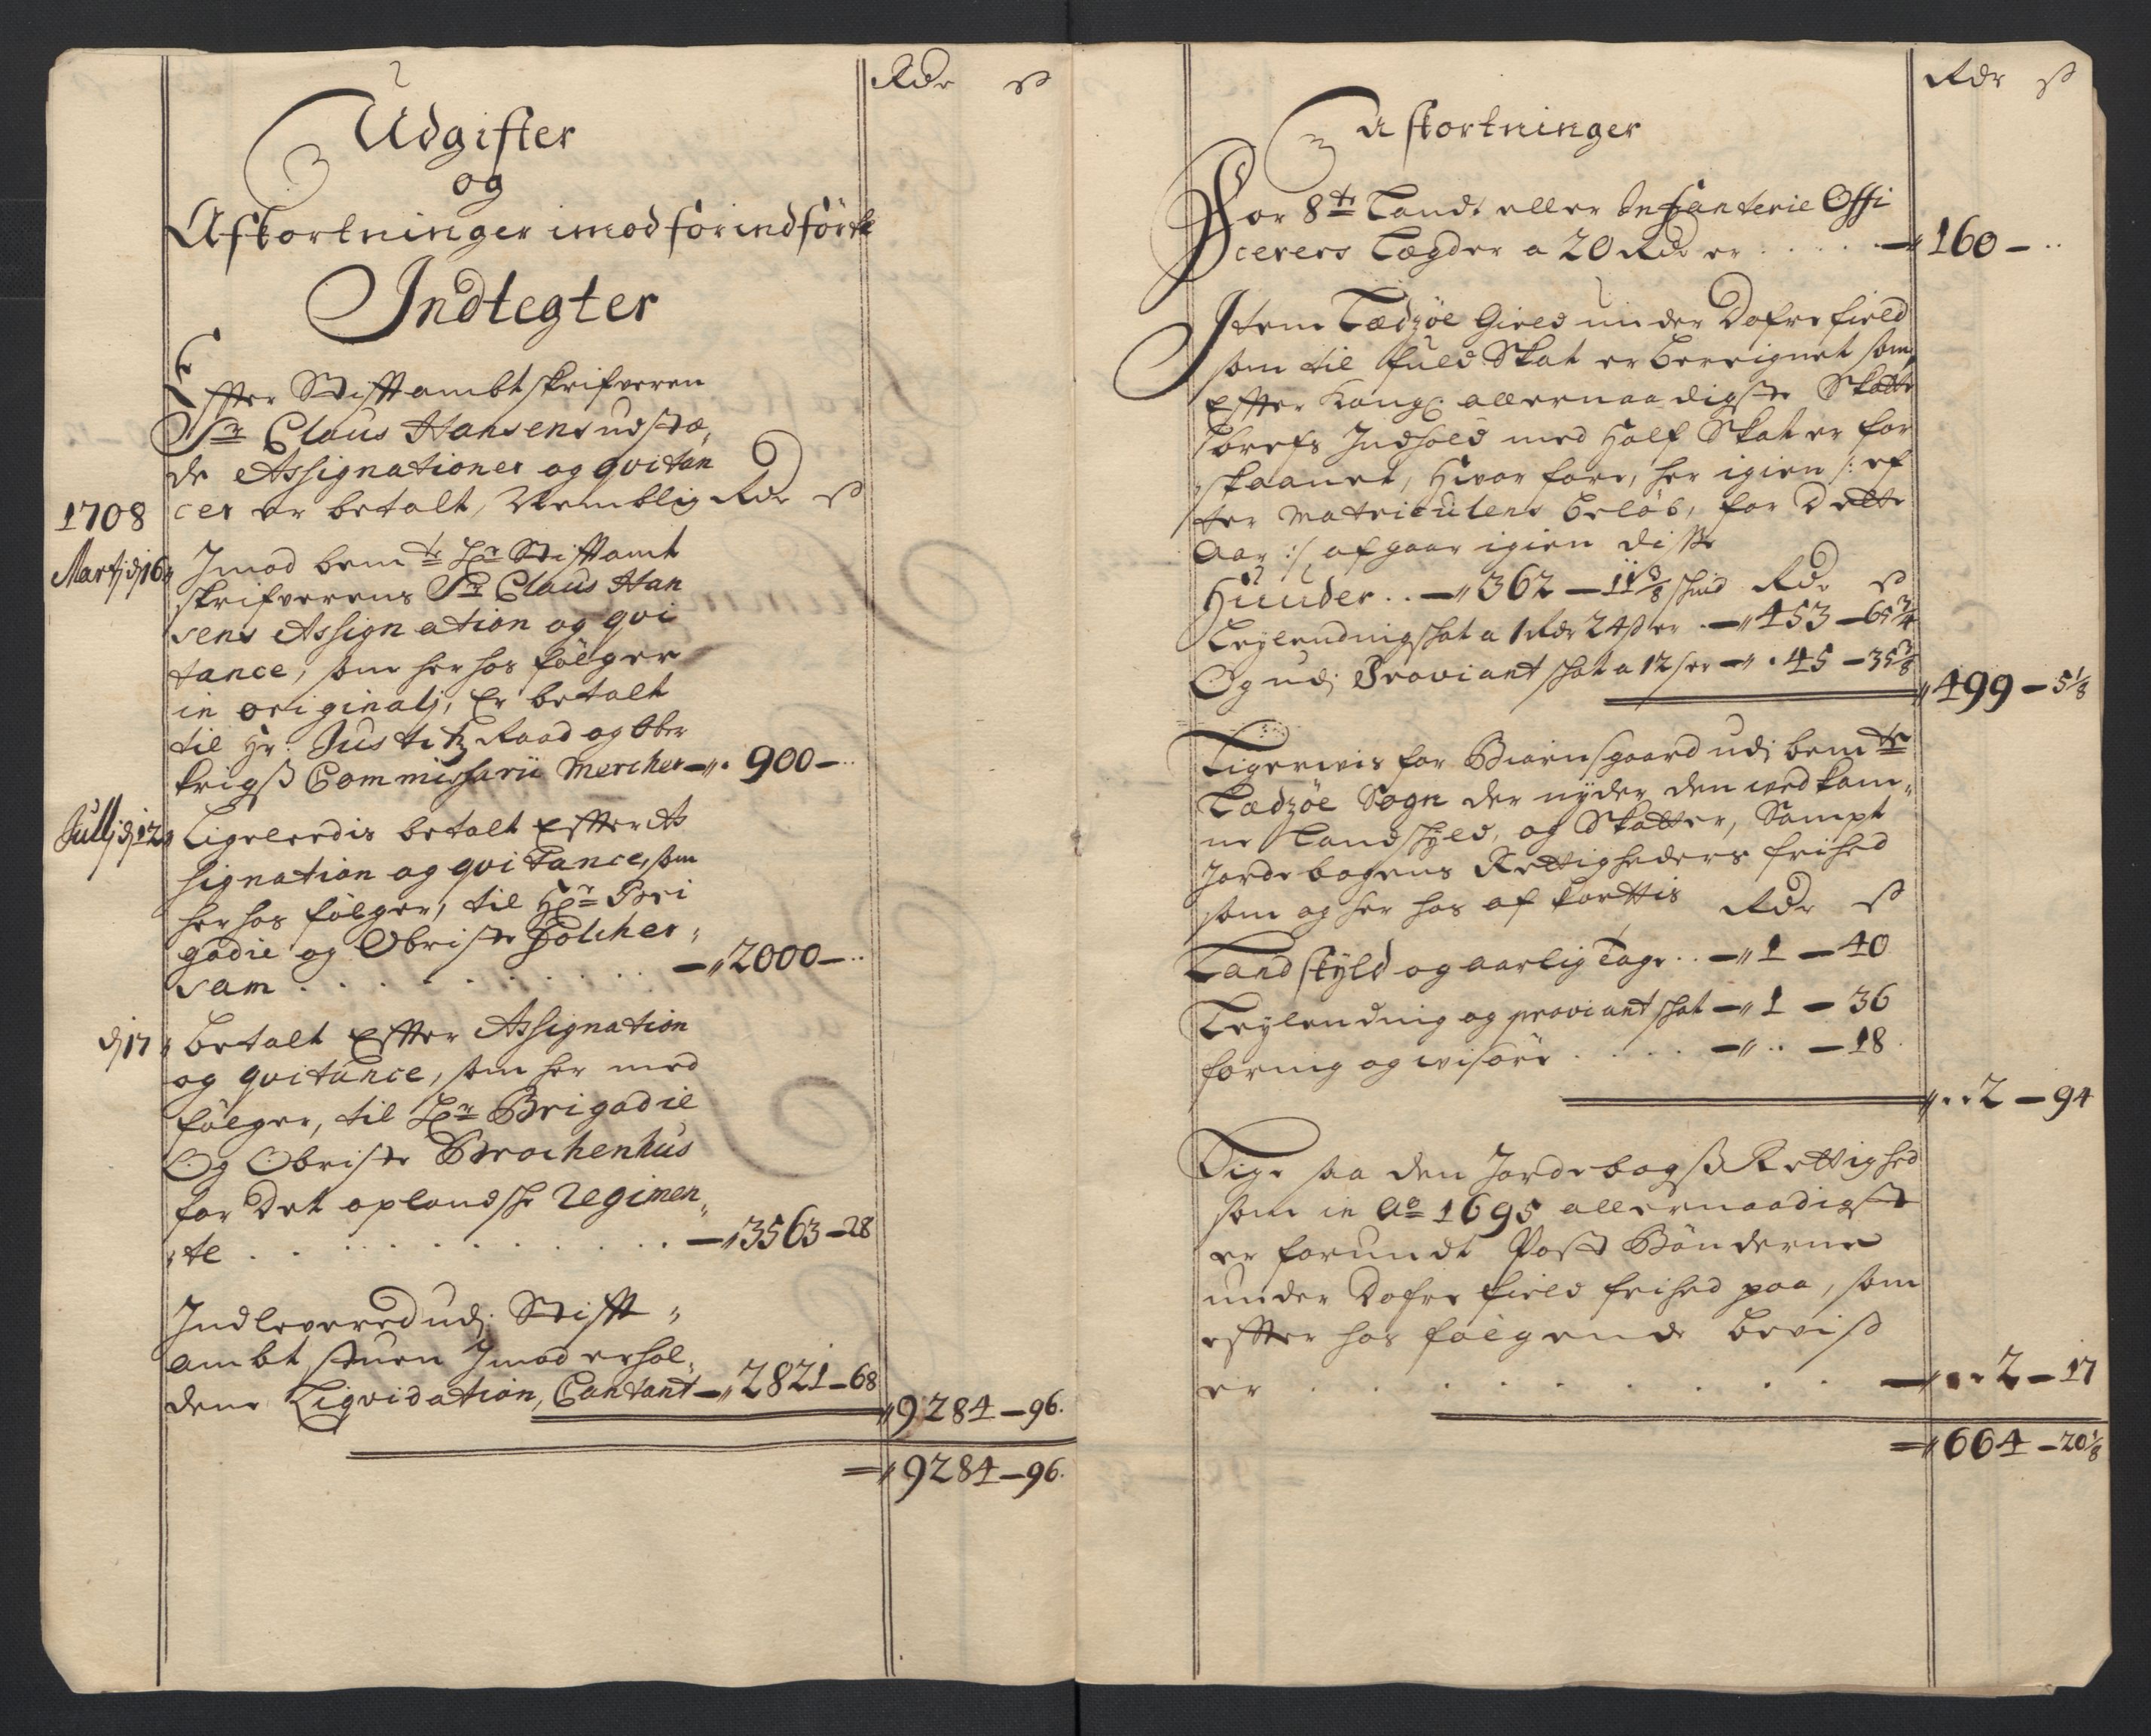 Rdr ß
Udgifter
og
Afkortninger imod forindförte
Indtegter
Effter Stifftambtskrifveren
Sr Claus Hansens udstæ,
de Assignationer og qvitan
cer er betalt, Nemblig Rdr ß
1708
Martj dj 16 Imod bemte Hr Stifftamt
skrifverens Sr Claus Han
sens Assignation og qvi
tance, som her hos fölger
in originalj, Er betalt
til Hr: Justitz Raad og Ober
krigß Commissarii Mercher 900 –
Julij dj 12 Ligeleedis betalt Effter As
signation og qvitance, som
her hos fölger, til Hr Bri
gadie og Obriste
sam 2000 –
dj 17 betalt Effter Assignation
og qvitance, som her med
fölger, til Hr Brigadie
Og Obriste Brochenhus
for Det oplandske Regimen,
te 3563 – 28
Indlevered udj Stifft
ambt stuen Imod erhol,
dene Liqvidation, Contant 2821 – 68
9284 – 96
9284 – 96
Rdr ß
Afkortninger
For 8te Land: eller Infanterie Offi
cerers Lægder a 20 Rdr er 160 –
Item Lædzöe Gield under Dofrefield
som til fuld Skat er bereignet som,
Effter Kongl: allernaadigste Skatte
brefs Indhold med Half Skat er for
skaanet, Hvor fore, her igien /: ef
ter Matriculens belöb, for Dette
Aar :/ afgaar igien disse
Huuder 362 – 11 3/8 skind Rdr ß
Leylendingskat a 1 Rdr 24 ß er 453 – 65 3/4
Og udj Proviant skat a 12 ß er 45 – 35 3/8
499 – 5 1/8
Ligerwis for Biornsgaard udj bemte
Lædzöe Sogn der nyder den vedkom,
ne Landskyld, og Skatter, Sampt
Jordebogens Rettigheders frihed
som og her hos af korttis Rdr ß
Landskyld og aarlig tage 1 – 40
Leylending og proviant skat 1 – 36
foring og wisöre – 18
2 – 94
Lige saa den Jordebogß Rettighed
som in Ao 1695 allernaadigst
er forundt Post Bönderne
under Dofre field frihed paa, som
effter hos fölgende beviß
er 2 – 17
664 – 20 1/8